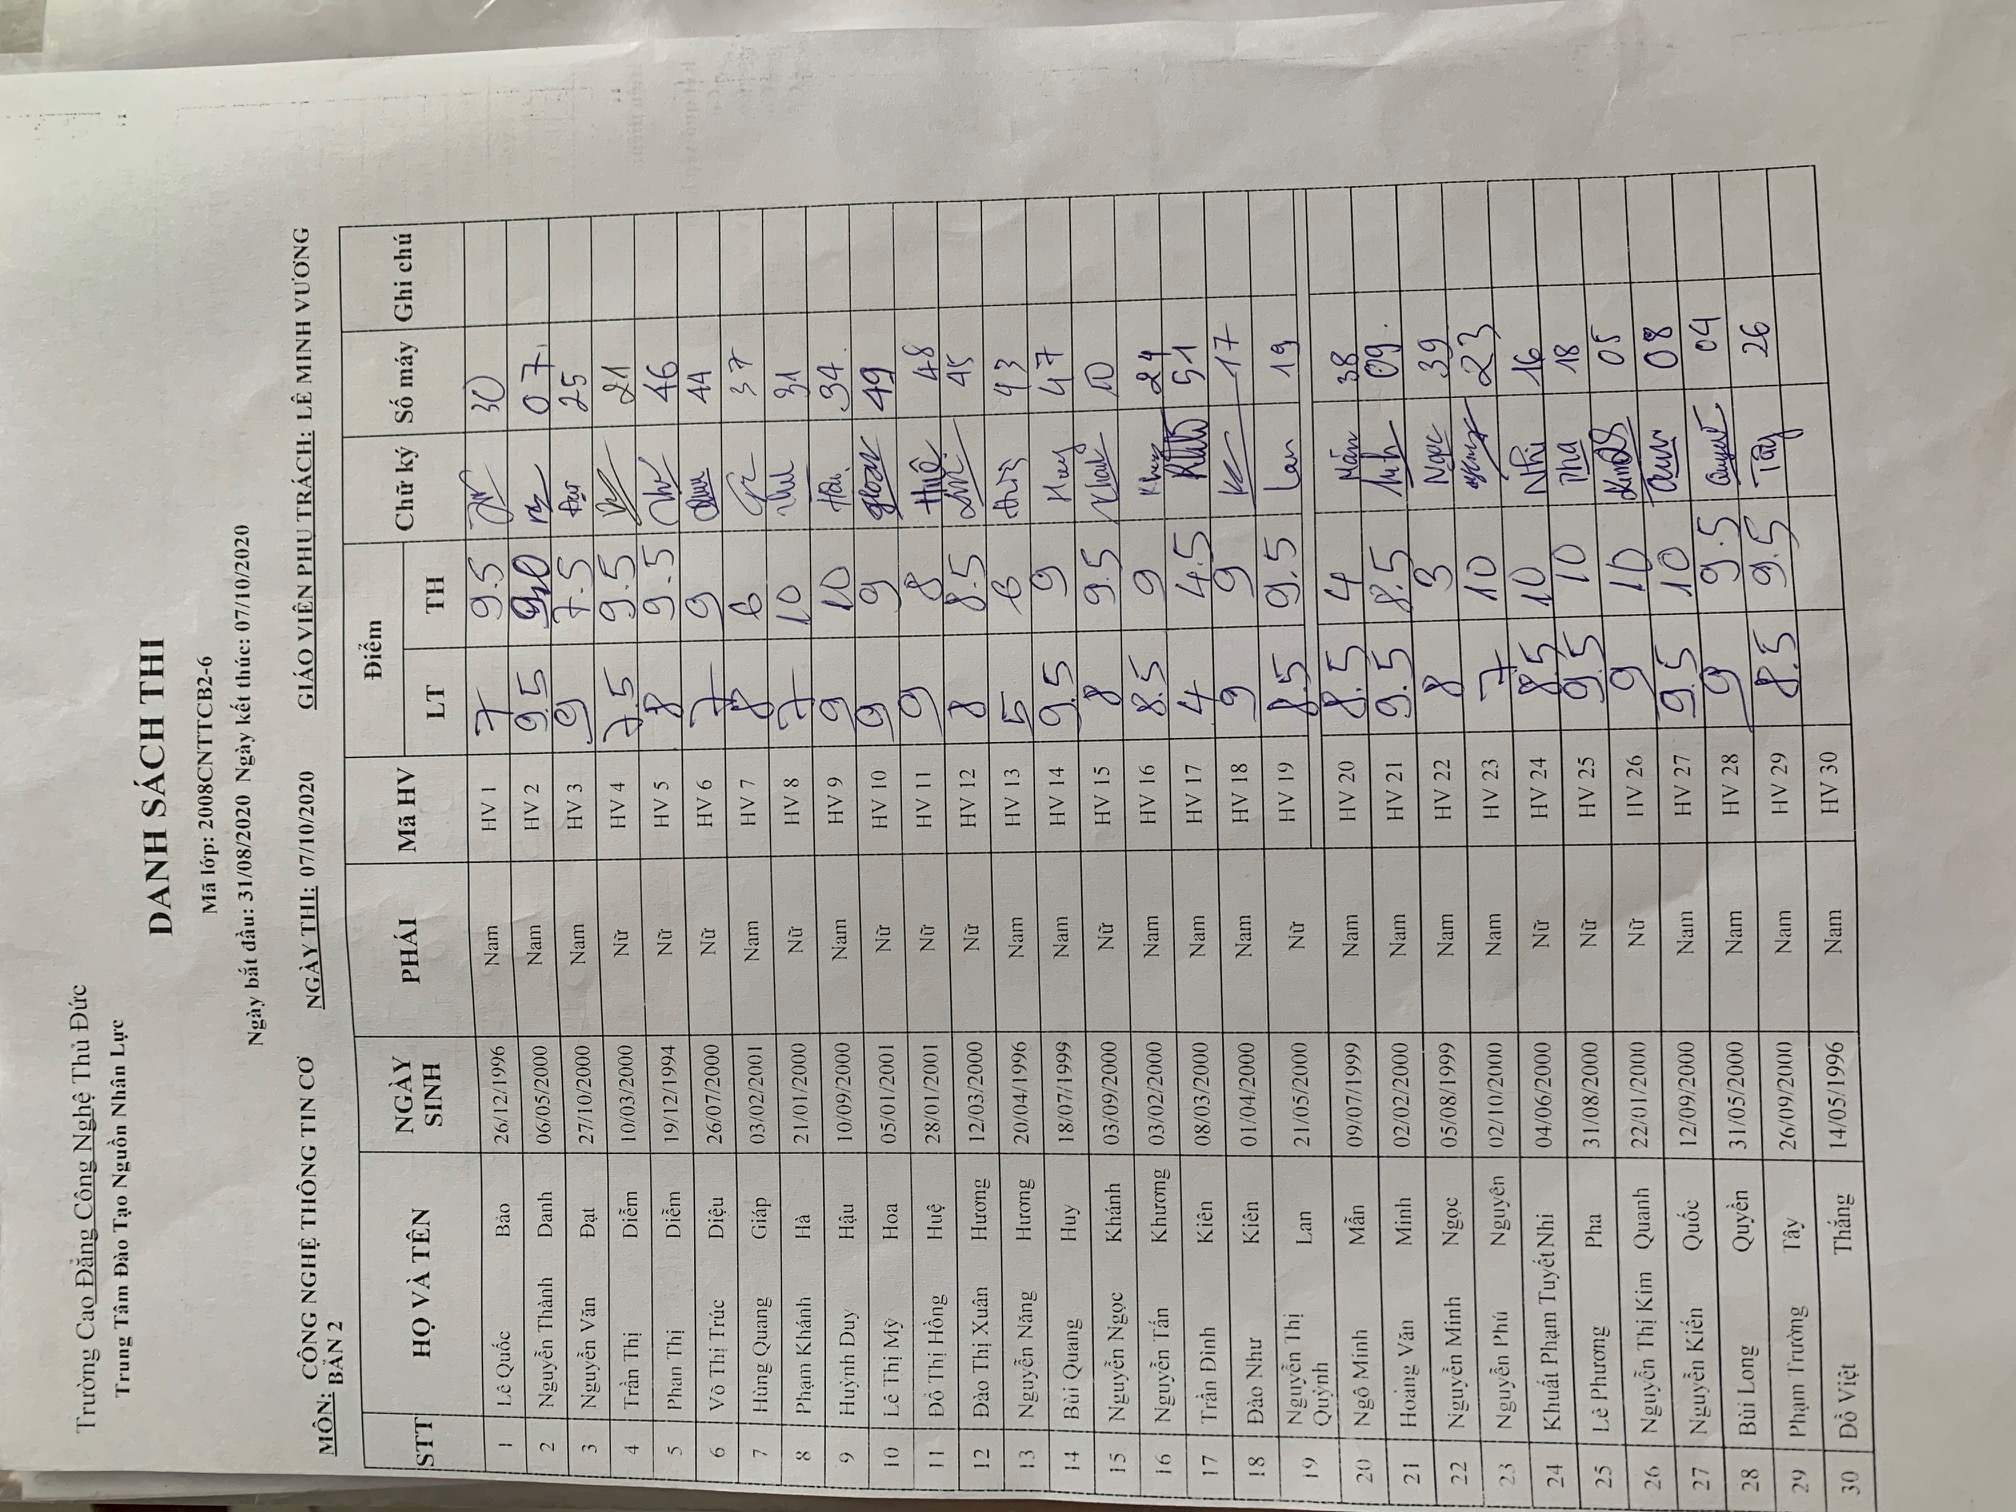 Trường Cao Đẳng Công Nghệ Thủ Đức
Trung Tâm Đào Tạo Nguồn Nhân Lực
DANH SÁCH THI
Mã lớp: 2008CNTTCB2-6
Ngày bắt đầu: 31/08/2020 Ngày kết thúc: 07/10/2020
MÔN: CÔNG NGHỆ THÔNG TIN CƠ BẢN 2 NGÀY THI: 07/10/2020 GIÁO VIÊN PHỤ TRÁCH: LÊ MINH VƯƠNG
STT HỌ VÀ TÊN NGÀY SINH PHÁI Mã HV Điểm Chữ ký Số máy Ghi chú
LT TH
1 Lê Quốc Bảo 26/12/1996 Nam HV 1 7 9.5 30
2 Nguyễn Thành Danh 06/05/2000 Nam HV 2 9.5 9.0 07
3 Nguyễn Văn Đạt 27/10/2000 Nam HV 3 9 7.5 Đạt 25
4 Trần Thị Diễm 10/03/2000 Nữ HV 4 7.5 9.5 21
5 Phan Thị Diễm 19/12/1994 Nữ HV 5 8 9.5 46
6 Võ Thị Trúc Diệu 26/07/2000 Nữ HV 6 7 9 44
7 Hùng Quang Giáp 03/02/2001 Nam HV 7 8 6 37
8 Phạm Khánh Hà 21/01/2000 Nữ HV 8 7 10 31
9 Huỳnh Duy Hậu 10/09/2000 Nam HV 9 9 10 Hậu 34
10 Lê Thị Mỹ Hoa 05/01/2001 Nữ HV 10 9 9 49
11 Đỗ Thị Hồng Huệ 28/01/2001 Nữ HV 11 9 8 Huệ 48
12 Đào Thị Xuân Hương 12/03/2000 Nữ HV 12 8 8.5 45
13 Nguyễn Năng Hương 20/04/1996 Nam HV 13 5 6 43
14 Bùi Quang Huy 18/07/1999 Nam HV 14 9.5 9 Huy 47
15 Nguyễn Ngọc Khánh 03/09/2000 Nữ HV 15 8 9.5 10
16 Nguyễn Tấn Khương 03/02/2000 Nam HV 16 8.5 9 24
17 Trần Đình Kiên 08/03/2000 Nam HV 17 4 4.5 51
18 Đào Như Kiên 01/04/2000 Nam HV 18 9 9 17
19 Nguyễn Thị Quỳnh Lan 21/05/2000 Nữ HV 19 8.5 9.5 Lan 19
20 Ngô Minh Mẫn 09/07/1999 Nam HV 20 8.5 4 Mẫn 38
21 Hoàng Văn Minh 02/02/2000 Nam HV 21 9.5 8.5 09
22 Nguyễn Minh Ngọc 05/08/1999 Nam HV 22 8 3 Ngọc 39
23 Nguyễn Phú Nguyên 02/10/2000 Nam HV 23 7 10 23
24 Khuất Phạm Tuyết Nhi 04/06/2000 Nữ HV 24 8.5 10 Nhi 16
25 Lê Phương Pha 31/08/2000 Nữ HV 25 9.5 10 Pha 18
26 Nguyễn Thị Kim Quanh 22/01/2000 Nữ HV 26 9 10 05
27 Nguyễn Kiến Quốc 12/09/2000 Nam HV 27 9.5 10 08
28 Bùi Long Quyền 31/05/2000 Nam HV 28 9 9.5 04
29 Phạm Trường Tây 26/09/2000 Nam HV 29 8.5 9.5 Tây 26
30 Đỗ Việt Thắng 14/05/1996 Nam HV 30